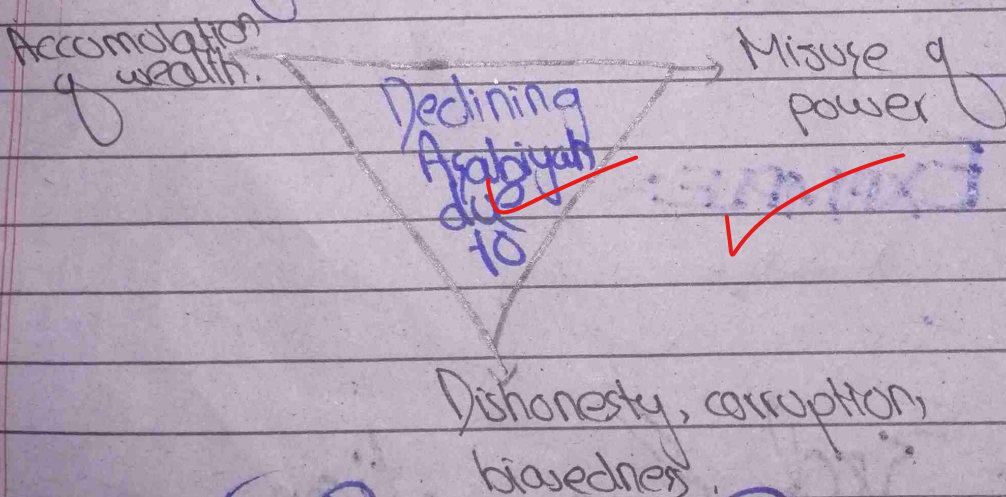 Accumolation
of wealth.
Misuse of
power
Declining
Asabiyah
due
to
Dishonesty, corruption,
biasedness.